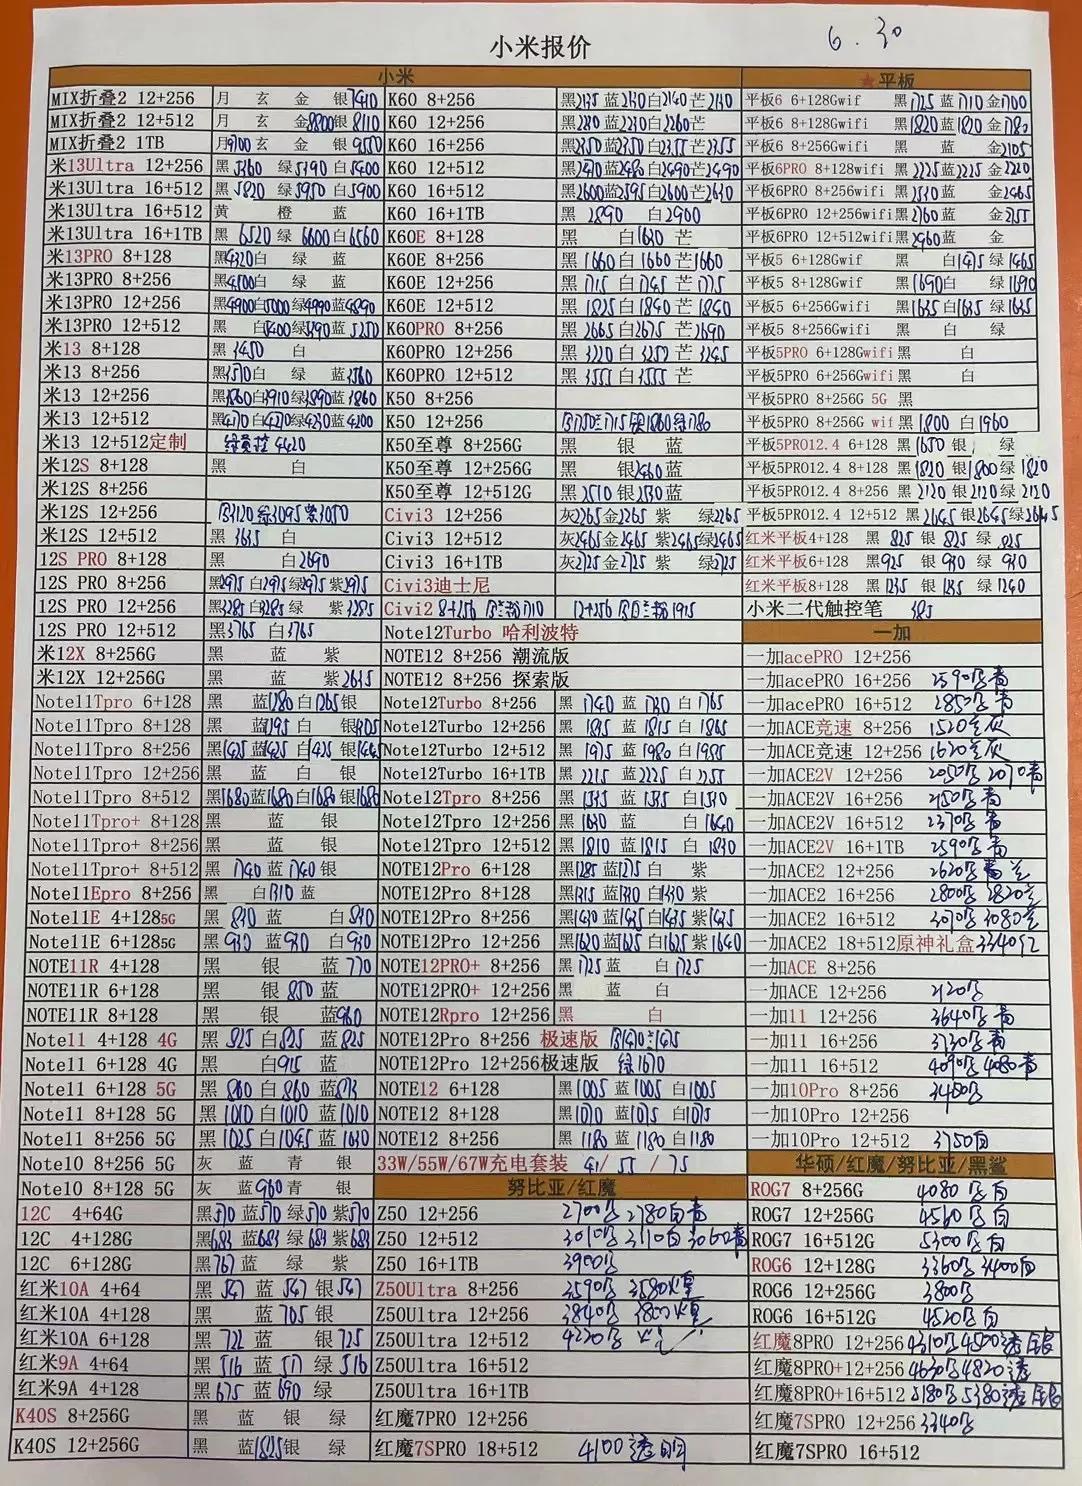 6.30
小米报价
小米
MIX折叠2 12+256 月 玄 金 银7410
MIX折叠2 12+512 月 玄 金8800银8110
MIX折叠2 1TB 月9100 玄 金 银9550
米13Ultra 12+256 黑5360 绿5390 白5400
米13Ultra 16+512 黑5820 绿5950 白5900
米13Ultra 16+512 黄 橙 蓝
米13Ultra 16+1TB 黑6520 绿6600白6560
米13PRO 8+128 黑4320白 绿 蓝
米13PRO 8+256 黑4500白 绿 蓝
米13PRO 12+256 黑4900白5000绿4990蓝4890
米13PRO 12+512 黑 白5400绿5390蓝5250
米13 8+128 黑3450 白
米13 8+256 黑3570白 绿 蓝3560
米13 12+256 黑3860白3910绿3890蓝3860
米13 12+512 黑4170白4270绿4230蓝4200
米13 12+512定制 4420
米12S 8+128 黑 白
米12S 8+256
米12S 12+256
米12S 12+512 黑 白
12S PRO 8+128 黑 白2690
12S PRO 8+256 黑2975白2975绿2975紫2975
12S PRO 12+256 黑3285白3285绿 紫3285
12S PRO 12+512 黑3765 白3765
米12X 8+256G 黑 蓝 紫
米12X 12+256G 黑 蓝 紫2635
Note11Tpro 6+128 黑 蓝1280白1265银
Note11Tpro 8+128 黑 蓝1295白 银1305
Note11Tpro 8+256 黑1425蓝1425白1425银1445
Note11Tpro 12+256 黑 蓝 白 银
Note11Tpro 8+512 黑1680蓝1680白1680银1680
Note11Tpro+ 8+128 黑 蓝 银
Note11Tpro+ 8+256 黑 蓝 银
Note11Tpro+ 8+512 黑1740蓝1740银
Note11Epro 8+256 黑 白1310蓝
Note11E 4+1285G 黑830 蓝 白830
Note11E 6+1285G 黑930 蓝930 白930
NOTE11R 4+128 黑 银 蓝770
NOTE11R 6+128 黑 银850蓝
NOTE11R 8+128 黑 银 蓝960
Note11 4+128 4G 黑825白825蓝825
Note11 6+128 4G 黑 白915蓝
Note11 6+128 5G 黑860白860蓝873
Note11 8+128 5G 黑1010白1010蓝1010
Note11 8+256 5G 黑1025白1045蓝1030
Note10 8+256 5G 灰 蓝 青 银
Note10 8+128 5G 灰 蓝960青 银
12C 4+64G 黑570蓝570绿570紫570
12C 4+128G 黑683蓝683绿683紫683
12C 6+128G 黑767蓝 绿 紫
红米10A 4+64 黑547蓝547银547
红米10A 4+128 黑 蓝705银
红米10A 6+128 黑722 蓝 银725
红米9A 4+64 黑516蓝517绿516
红米9A 4+128 黑675蓝690绿
K40S 8+256G 黑 蓝 银 绿
K40S 12+256G 黑 蓝1825银 绿
K60 8+256 黑2135蓝2130白2140芒2130
K60 12+256 黑2230蓝2230白2260芒
K60 16+256 黑2350蓝2350白2355芒2355
K60 12+512 黑2470蓝2480白2490芒2490
K60 16+512 黑2600蓝2595白2600芒2630
K60 16+1TB 黑2890 白2900
K60E 8+128 黑 白1630芒
K60E 8+256 黑1660白1660芒1660
K60E 12+256 黑1715白1745芒1775
K60E 12+512 黑1825白1840芒1840
K60PRO 8+256 黑2665白2675芒2690
K60PRO 12+256 黑3220白3250芒3245
K60PRO 12+512 黑3555白3555芒
K50 8+256
K50 12+256
K50至尊 8+256G 黑 银 蓝
K50至尊 12+256G 黑 银2460蓝
K50至尊 12+512G 黑2510银2530蓝
Civi3 12+256 灰2265金2265紫 绿2265
Civi3 12+512 灰2465金2465紫2465绿2465
Civi3 16+1TB 灰2725金2725紫 绿2725
Civi3迪士尼
Civi2 8+256 12+256 1915
Note12Turbo 哈利波特
NOTE12 8+256 潮流版
NOTE12 8+256 探索版
Note12Turbo 8+256 黑1740蓝1730白1765
Note12Turbo 12+256 黑1895蓝1815白1865
Note12Turbo 12+512 黑1975蓝1980白1985
Note12Turbo 16+1TB 黑2215蓝2225白2255
Note12Tpro 8+256 黑1535蓝1535白1530
Note12Tpro 12+256 黑1630蓝 白1640
Note12Tpro 12+512 黑1810蓝1815白1830
NOTE12Pro 6+128 黑1285蓝1275白 紫
NOTE12Pro 8+128 黑1315蓝1330白1330紫
NOTE12Pro 8+256 黑1430蓝1435白1435紫1435
NOTE12Pro 12+256 黑1620蓝1625白1625紫1640
NOTE12PRO+ 8+256 黑1725蓝 白1725
NOTE12PRO+ 12+256 黑 蓝 白
NOTE12Rpro 12+256 黑 白
NOTE12Pro 8+256 极速版
NOTE12Pro 12+256极速版 绿1670
NOTE12 6+128 黑1005蓝1005白1005
NOTE12 8+128 黑1070蓝1075白1075
NOTE12 8+256 黑1180蓝1180白1180
33W/55W/67W充电套装 41/55/75
努比亚/红魔
Z50 12+256 2700 2780白青
Z50 12+512 3010 3110白3060青
Z50 16+1TB 3900
Z50Ultra 8+256 3590 3580
Z50Ultra 12+256 3840 3800
Z50Ultra 12+512 4220
Z50Ultra 16+512
Z50Ultra 16+1TB
红魔7PRO 12+256
红魔7SPRO 18+512 4100透明
★平板
平板6 6+128Gwif 黑1725蓝1710金1700
平板6 8+128Gwifi 黑1820蓝1820金1780
平板6 8+256Gwifi 黑 蓝 金2105
平板6PRO 8+128wifi 黑2225蓝2225金2220
平板6PRO 8+256wifi 黑2530蓝 金2465
平板6PRO 12+256wifi黑2760蓝 金2755
平板6PRO 12+512wifi黑2960蓝 金
平板5 6+128Gwif 黑 白1475绿1465
平板5 8+128Gwifi 黑1690白 绿1690
平板5 6+256Gwifi 黑1635白1635绿1635
平板5 8+256Gwifi 黑 白 绿
平板5PRO 6+128Gwifi黑 白
平板5PRO 6+256Gwifi黑 白
平板5PRO 8+256G 5G 黑
平板5PRO 8+256G wif黑1800白1960
平板5PRO12.4 6+128 黑1650银 绿
平板5PRO12.4 8+128 黑1820银1800绿1820
平板5PRO12.4 8+256 黑2120银2120绿2120
平板5PRO12.4 12+512 黑2645银2645绿2645
红米平板4+128 黑825银825绿825
红米平板6+128 黑925银930绿930
红米平板8+128 黑1235银1235绿1240
小米二代触控笔 385
一加
一加acePRO 12+256
一加acePRO 16+256 2590 青
一加acePRO 16+512 2850 青
一加ACE竞速 8+256 1520 灰
一加ACE竞速 12+256 1620 灰
一加ACE2V 12+256 2050 2070青
一加ACE2V 16+256 2150 青
一加ACE2V 16+512 2370 青
一加ACE2V 16+1TB 2590 青
一加ACE2 12+256 2620
一加ACE2 16+256 2800 2820
一加ACE2 16+512 3070 3080
一加ACE2 18+512原神礼盒3340红
一加ACE 8+256
一加ACE 12+256 2120
一加11 12+256 3640 青
一加11 16+256 3730 青
一加11 16+512 4090 4080青
一加10Pro 8+256 3450
一加10Pro 12+256
一加10Pro 12+512 3750白
华硕/红魔/努比亚/黑鲨
ROG7 8+256G 4080 白
ROG7 12+256G 4560 白
ROG7 16+512G 5300 白
ROG6 12+128G 3360 3400白
ROG6 12+256G 3800
ROG6 16+512G 4520 白
红魔8PRO 12+256 4310 4500透
红魔8PRO+12+256 4630 4820透
红魔8PRO+16+512 5180 5380透
红魔7SPRO 12+256 3340
红魔7SPRO 16+512